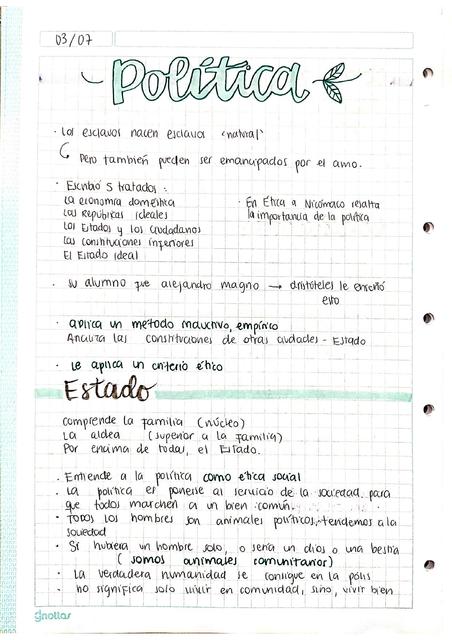 03/07
Política
· Los esclavos nacen esclavos "natural"
Pero también pueden ser emanupados por el amo.
· Escribió 5 tratados:
La economía doméstica
Las Repúblicas ideales
Los Estados y los ciudadanos
Las constituciones inferiores
El Estado ideal
· En Ética a Nicómaco resalta
la importancia de la política
· su alumno fue alejandro magno → aristóteles le enseñó
esto
· aplica un método inductivo, empírico
Analiza las constituciones de otras ciudades - Estado
· Le aplica un criterio ético
Estado
comprende la familia (núcleo)
La aldea (superior a la familia)
Por encima de todas, el Estado.
· Entiende a la política como ética social
· La política es ponerse al servicio de la sociedad para
que todos marchen a un bien común.
· Todos los hombres son animales políticos, tendemos a la
sociedad
· Si hubiera un hombre solo, o sería un dios o una bestia
(somos animales comunitarios)
· La verdadera humanidad se consigue en la pólis
· no significa solo vivir en comunidad, sino, vivir bien
gnottas